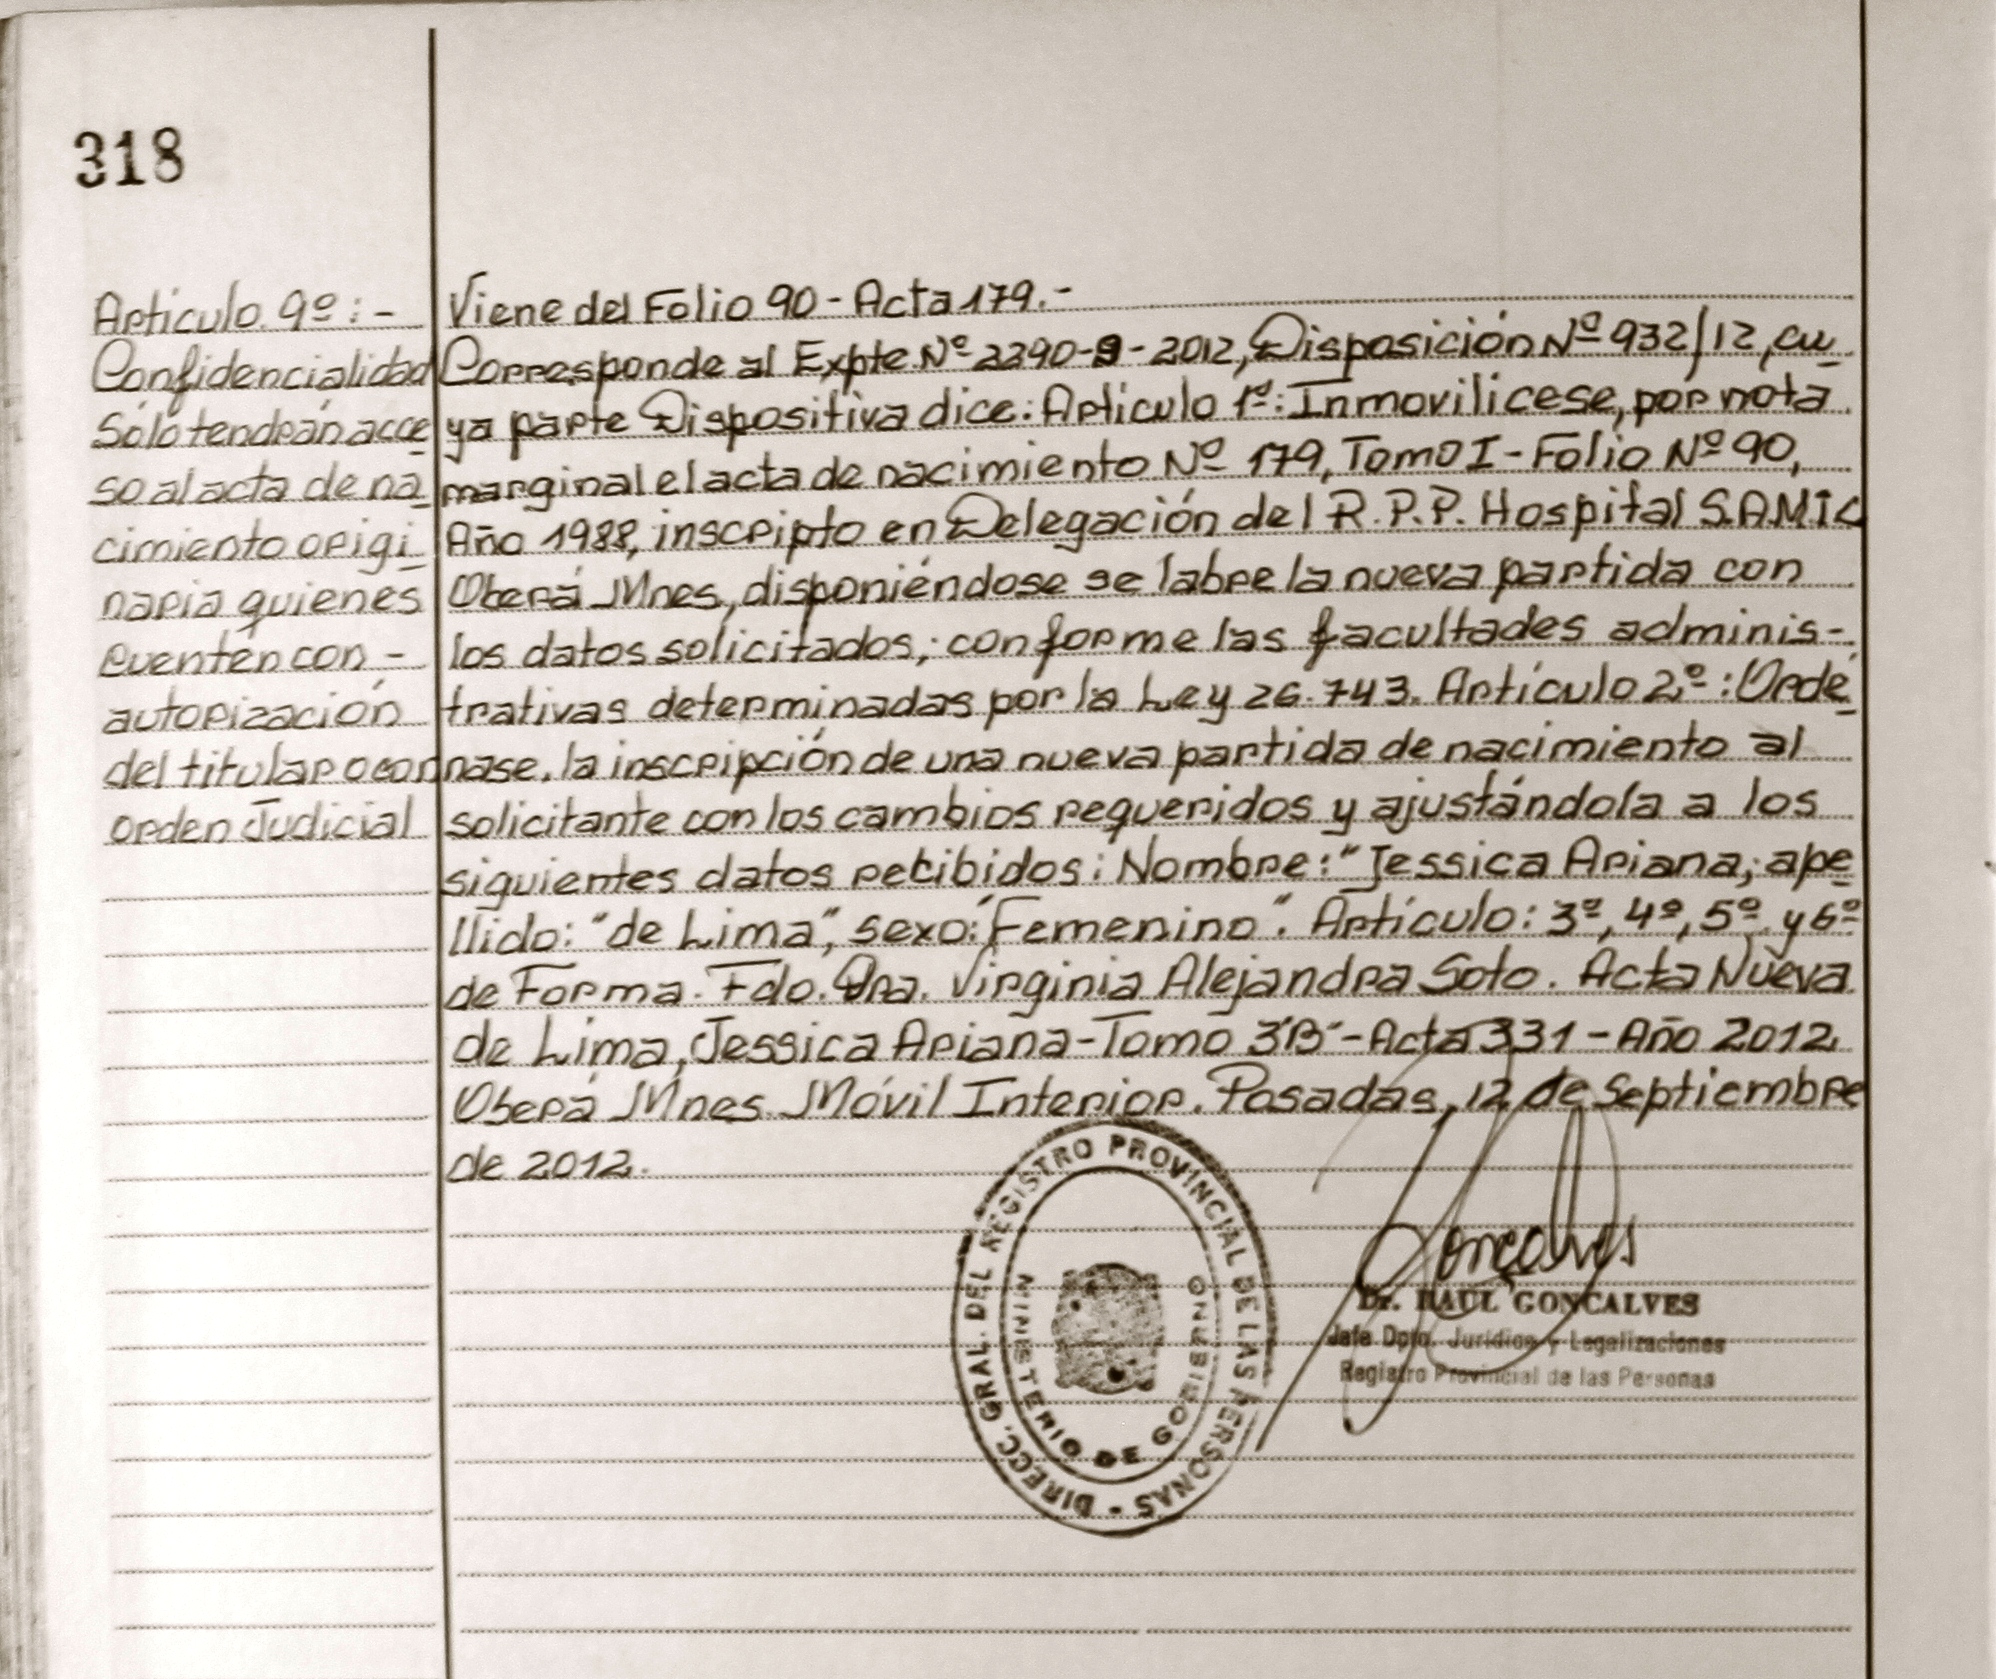 318
Artículo 9º:-
Confidencialidad
Sólo tendrán acce
so al acta de na
cimiento origi
naria quienes
cuenten con -
autorización
del titular o con
orden Judicial
Viene del Folio 90 - Acta 179.-
Corresponde al Expte. Nº 2390-9-2012, Disposición Nº 932/12, cu
ya parte Dispositiva dice: Artículo 1º: Inmovilicese, por nota
marginal el acta de nacimiento Nº 179, Tomo I - Folio Nº 90,
Año 1988, inscripto en Delegación del R.P.P. Hospital S.A.M.I.C
Oberá Mnes, disponiéndose se labre la nueva partida con
los datos solicitados; conforme las facultades adminis-
trativas determinadas por la Ley 26.743. Artículo 2º: Orde
nase, la inscripción de una nueva partida de nacimiento al
solicitante con los cambios requeridos y ajustándola a los
siguientes datos recibidos: Nombre: "Jessica Ariana; ape
llido: "de Lima", sexo: "Femenino". Artículo: 3º, 4º, 5º y 6º
de Forma. Fdo. Dra. Virginia Alejandra Soto. Acta Nueva
de Lima, Jessica Ariana - Tomo 3"B" - Acta 331 - Año 2012
Oberá Mnes Móvil Interior. Posadas, 12 de Septiembre
de 2012.
DIRECC. GRAL. DEL REGISTRO PROVINCIAL DE LAS PERSONAS -
MINISTERIO DE GOBIERNO
Gonçalves
Dr. RAUL GONCALVES
Jefe Dpto. Jurídico y Legalizaciones
Registro Provincial de las Personas